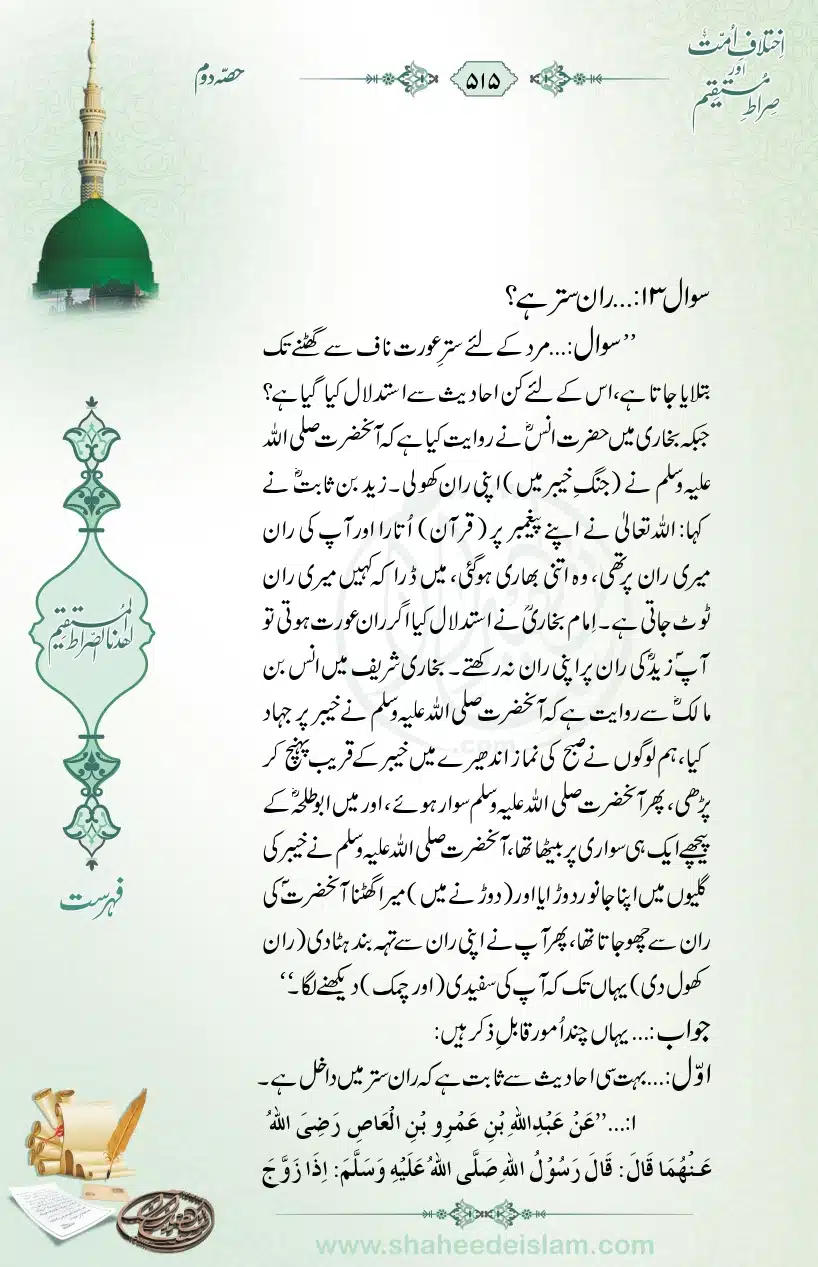 اِختلافِ اُمّت
اور
صِراطِ مُستقیم
۵۱۵
حصّہ دوم
سوال۱۳:...ران ستر ہے؟
’’سوال:...مرد کے لئے سترِ عورت ناف سے گھٹنے تک
بتلایا جاتا ہے، اس کے لئے کن احادیث سے استدلال کیا گیا ہے؟
جبکہ بخاری میں حضرت انسؓ نے روایت کیا ہے کہ آنحضرت صلی اللہ
علیہ وسلم نے (جنگِ خیبر میں) اپنی ران کھولی۔ زید بن ثابتؓ نے
کہا: اللہ تعالیٰ نے اپنے پیغمبر پر (قرآن) اُتارا اور آپ کی ران
میری ران پر تھی، وہ اتنی بھاری ہوگئی، میں ڈرا کہ کہیں میری ران
ٹوٹ جاتی ہے۔ اِمام بخاریؒ نے استدلال کیا اگر ران عورت ہوتی تو
آپؐ زیدؓ کی ران پر اپنی ران نہ رکھتے۔ بخاری شریف میں انس بن
مالکؓ سے روایت ہے کہ آنحضرت صلی اللہ علیہ وسلم نے خیبر پر جہاد
کیا، ہم لوگوں نے صبح کی نماز اندھیرے میں خیبر کے قریب پہنچ کر
پڑھی، پھر آنحضرت صلی اللہ علیہ وسلم سوار ہوئے، اور میں ابوطلحہؓ کے
پیچھے ایک ہی سواری پر بیٹھا تھا، آنحضرت صلی اللہ علیہ وسلم نے خیبر کی
گلیوں میں اپنا جانور دوڑایا اور (دوڑنے میں) میرا گھٹنا آنحضرتؐ کی
ران سے چھو جاتا تھا، پھر آپ نے اپنی ران سے تہہ بند ہٹادی (ران
کھول دی) یہاں تک کہ آپ کی سفیدی (اور چمک) دیکھنے لگا۔‘‘
جواب:... یہاں چند اُمور قابلِ ذکر ہیں:
اوّل:...بہت سی احادیث سے ثابت ہے کہ ران ستر میں داخل ہے۔
۱:...’’عَنْ عَبْدِاللهِ بْنِ عَمْرِو بْنِ الْعَاصِ رَضِيَ اللهُ
عَنْهُمَا قَالَ: قَالَ رَسُوْلُ اللهِ صَلَّى اللهُ عَلَيْهِ وَسَلَّمَ: اِذَا زَوَّجَ
اِهْدِنَا الصِّرَاطَ الْمُسْتَقِیْمَ
فہرست
www.shaheedeislam.com